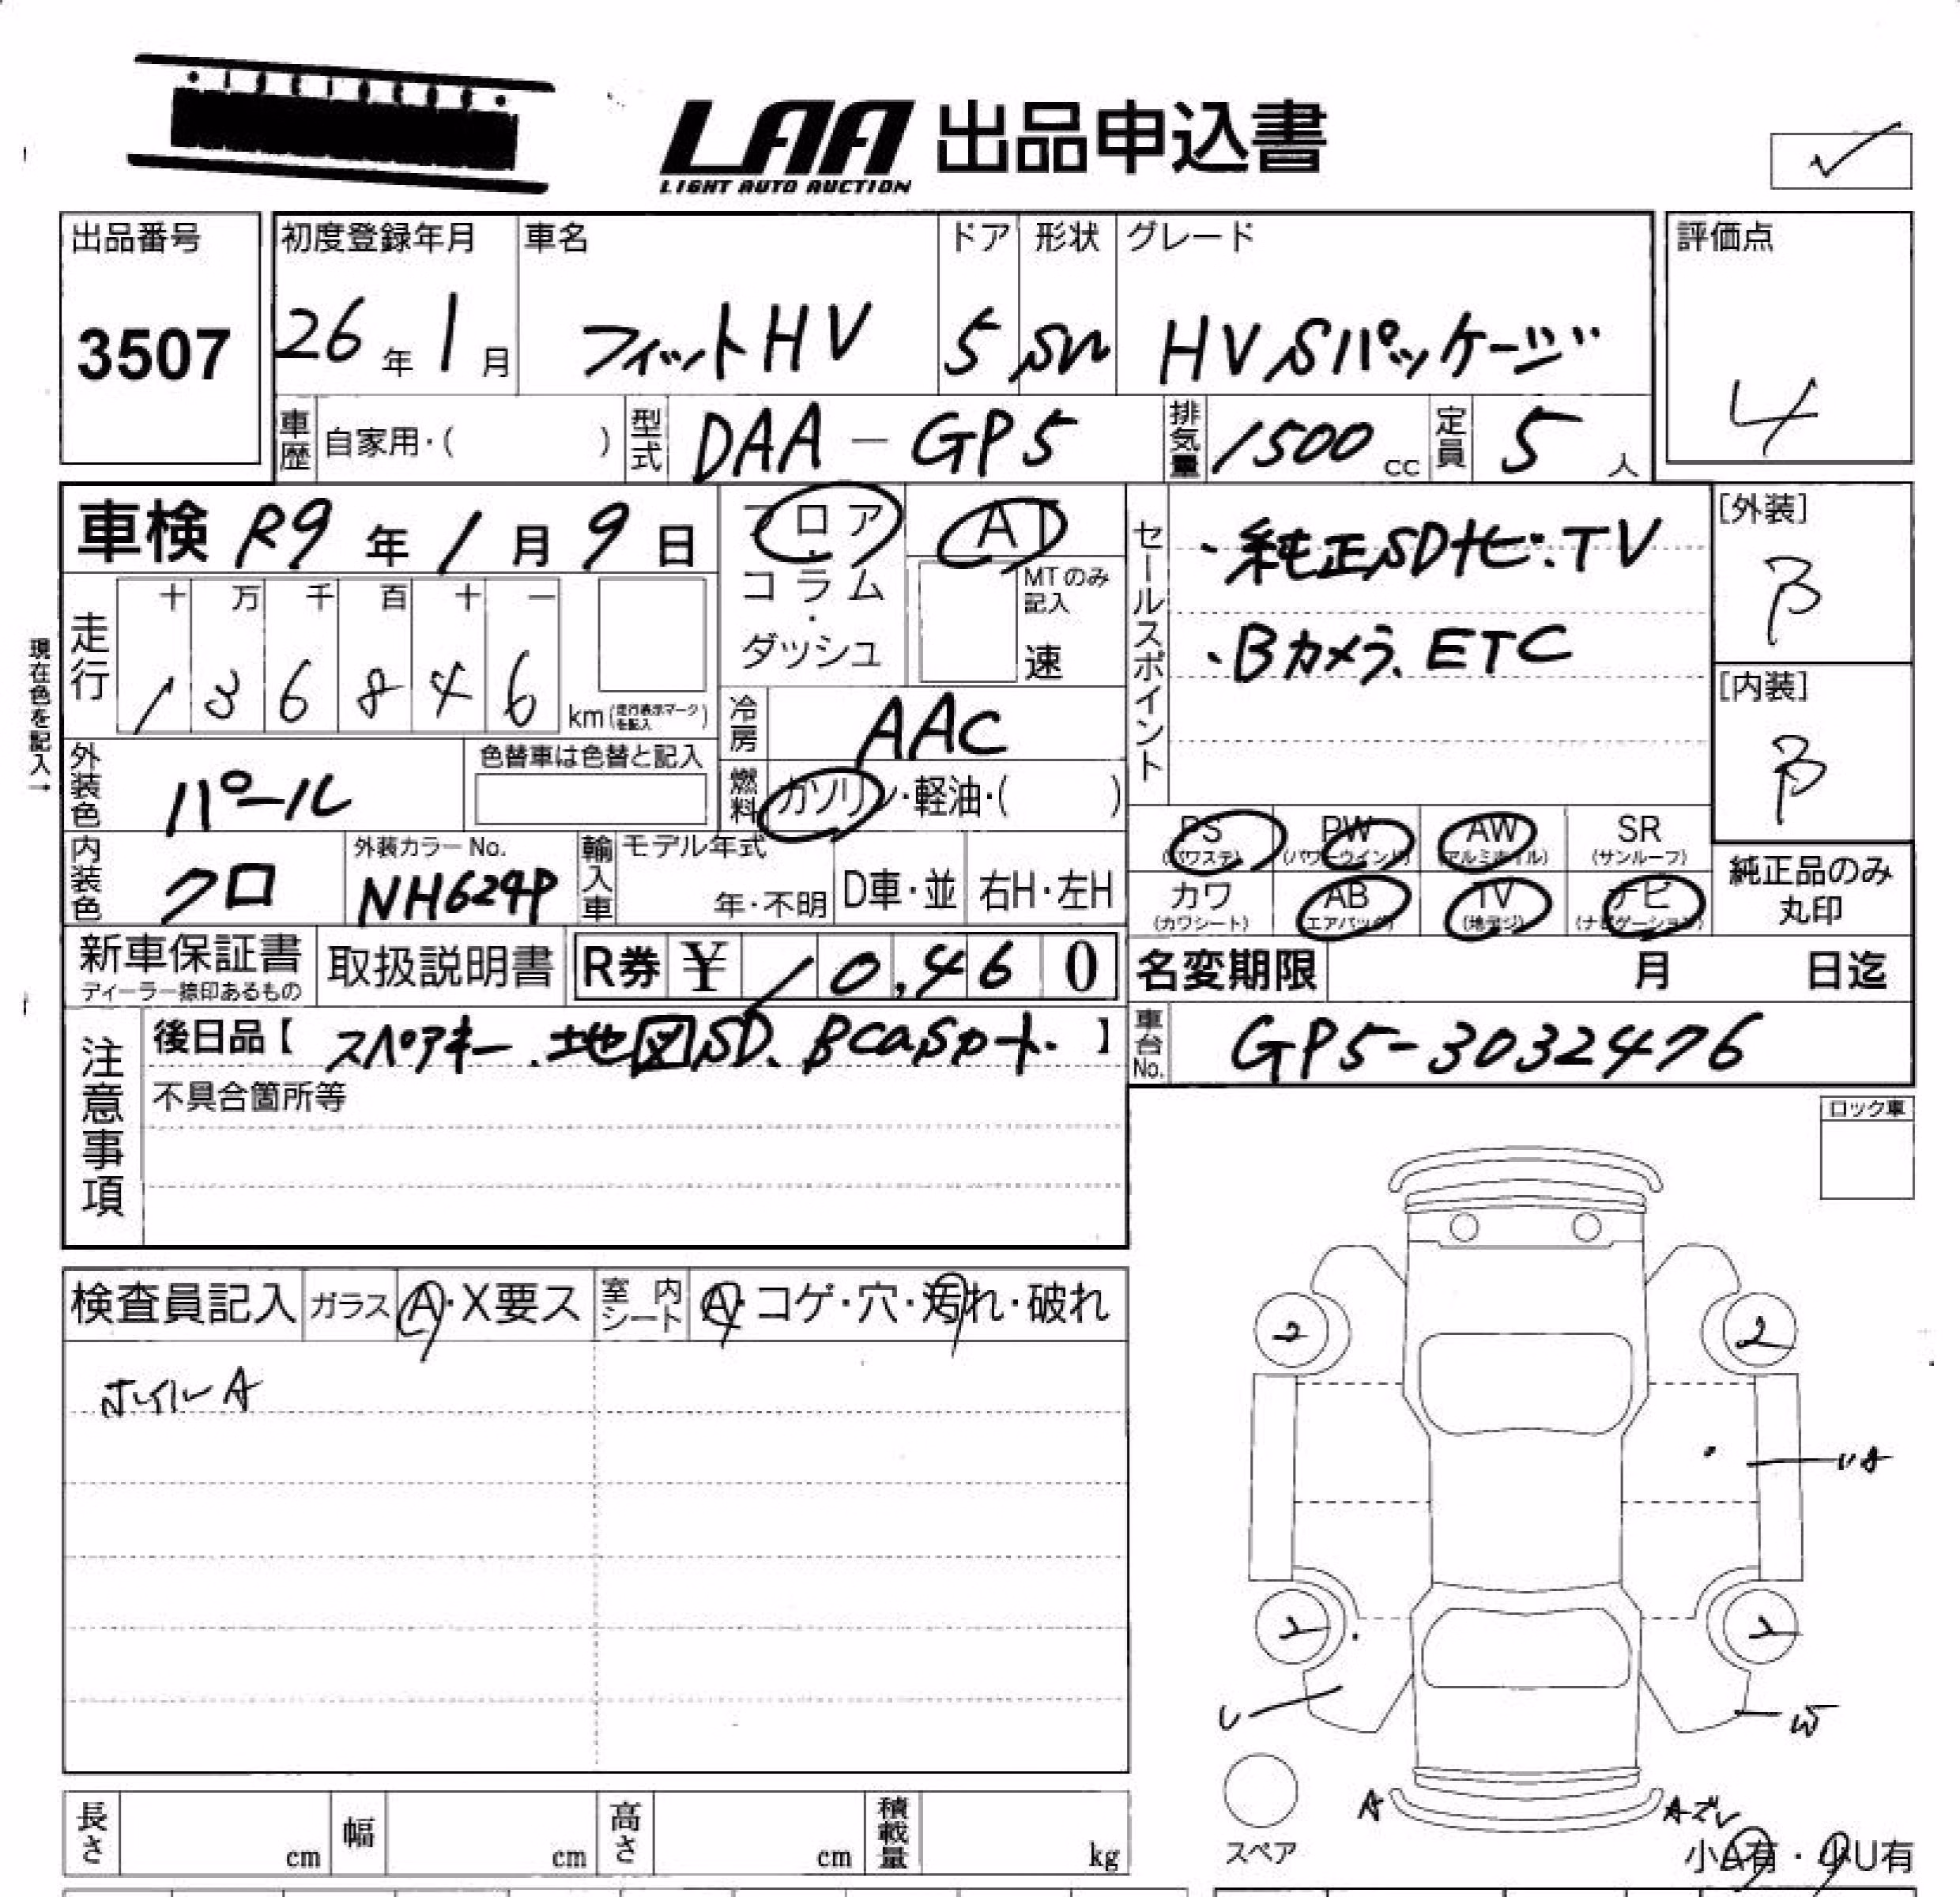 LAA 出品申込書
LIGHT AUTO AUCTION
出品番号
3507
初度登録年月
26年1月
車名
フィットHV
ドア
5
形状
SW
グレード
HV Sパッケージ
評価点
4
車歴 自家用・( )
型式 DAA-GP5
排気量 1500cc
定員 5人
車検 R9年1月9日
フロア・コラム・ダッシュ
AT
MTのみ記入
速
セールスポイント
・純正SDナビ.TV
・Bカメラ.ETC
[外装]
B
[内装]
B
現在色を記入→
走行
十 万 千 百 十 一
1 3 6 8 4 6 km(走行表示マークを記入)
冷房 AAC
燃料 ガソリン・軽油・( )
外装色 パール
色替車は色替と記入
内装色 クロ
外装カラーNo.
NH624P
輸入車
モデル年式
年・不明
D車・並
右H・左H
PS (パワステ)
PW (パワーウインド)
AW (アルミホイル)
SR (サンルーフ)
カワ (カワシート)
AB (エアバッグ)
TV (地デジ)
ナビ (ナビゲーション)
純正品のみ丸印
新車保証書
ディーラー捺印あるもの
取扱説明書
R券 ¥ 10,460
名変期限 月 日迄
注意事項
後日品【スペアキー.地図SD、BCasカード.】
不具合箇所等
車台No. GP5-3032476
ロック車
検査員記入
ガラス A・X要ス
室内シート A・コゲ・穴・汚れ・破れ
ホイルA
2
2
UA
2
2
U
W
A
Aズレ
スペア
小A有・小U有
長さ cm
幅 cm
高さ cm
積載量 kg